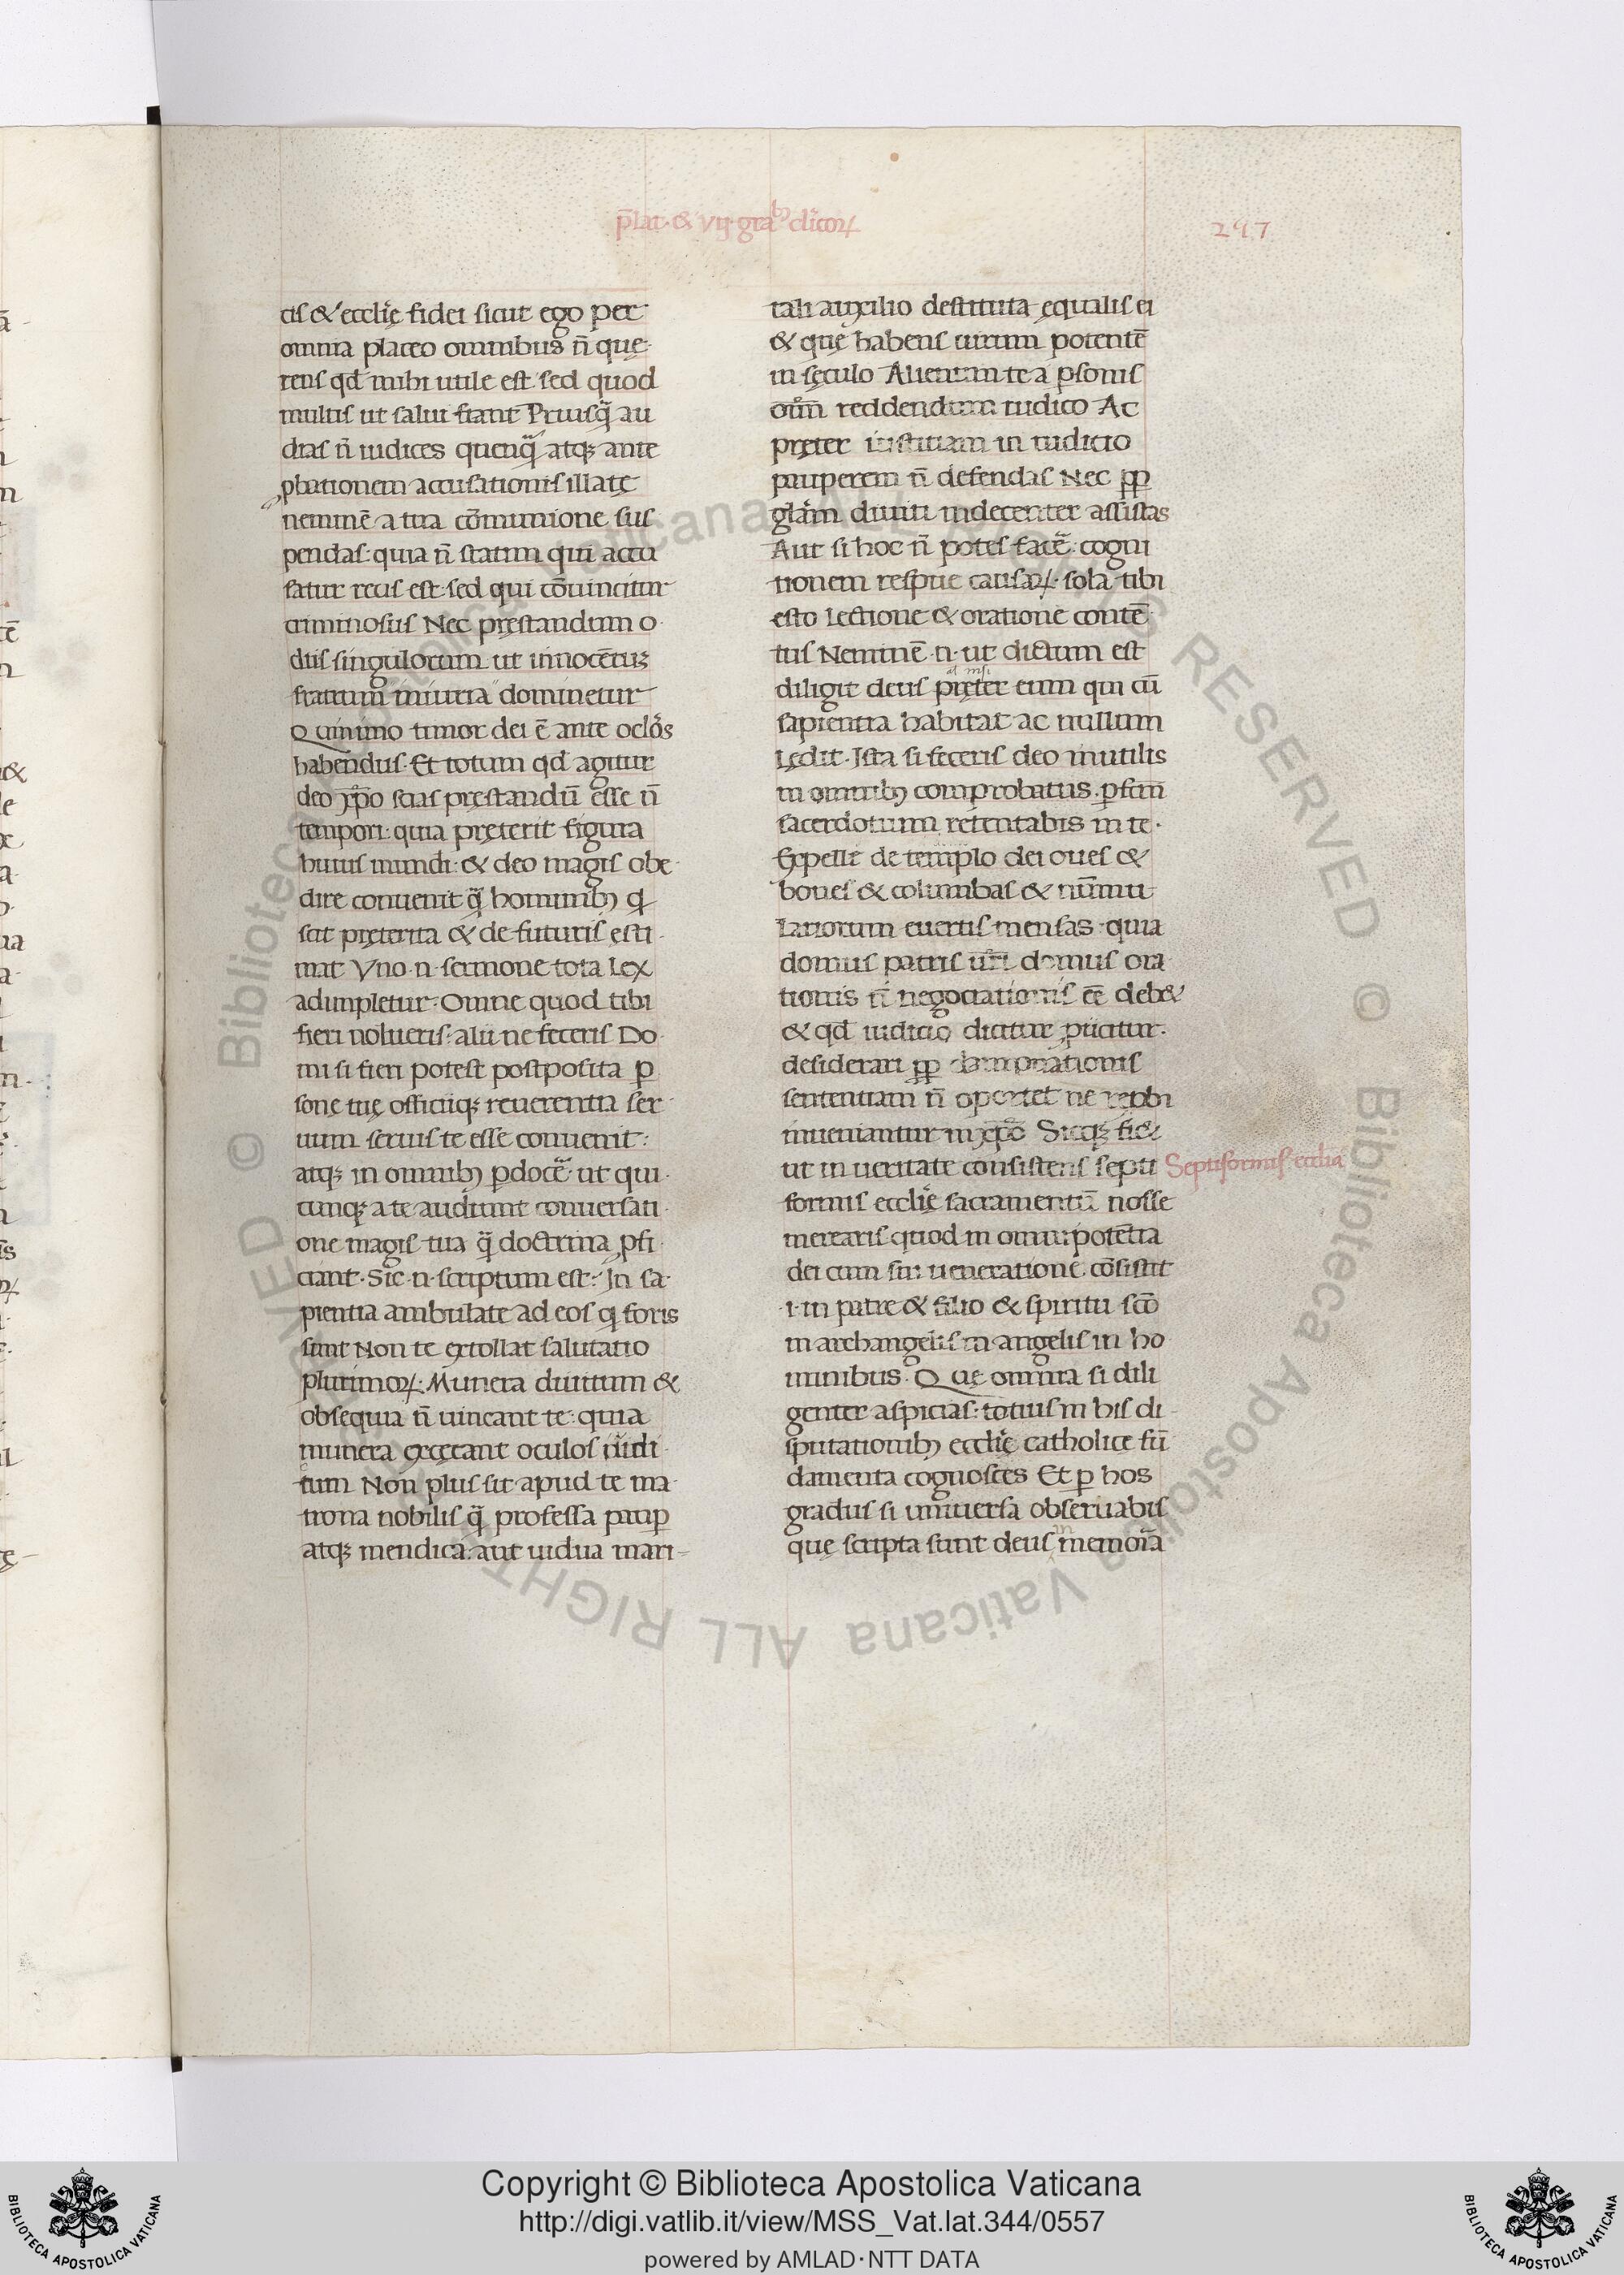 p̄lat · & vij · gra^b₉ cl̄icoꝝ
297
cis & eccl̄ię fidei sicut ego per
omnia placeo omnibus n̄ que
rens qd̄ mihi utile est sed quod
multis ut salui fiant Priusq̄ au
dias n̄ iudices quenq̄ atqꝫ ante
ꝓbationem accusationis illatę
neminē a tua cōmunione sus
pendas: quia n̄ statim qui accu
satur reus est: sed qui cōuincitur
criminosus Nec pręstandum o
diis singulorum ut innocētuꝫ
fratrum iniuria dominetur
Quinimo timor dei ē ante ocl̄os
habendus · Et totum qd̄ agitur
deo xp̄o scias pręstandū esse n̄
tempori: quia pręterit figura
huius mundi: & deo magis obe
dire conuenit q̄ hominibꝰ q
scit pręterita & de futuris ęsti
mat Vno · n · sermone tota Lex
adimpletur · Omne quod tibi
fieri nolueris: alii ne feceris Do
mi si fieri potest postposita ꝑ
sonę tuę officiiqꝫ reuerentia ser
uum seruis te esse conuenit:
atqꝫ in omnibꝰ ꝑdocē ut qui
cunqꝫ a te audiunt conuersati
one magis tua q̄ doctrina ꝓfi
ciant · Sic · n · scriptum est: In sa
pientia ambulate ad eos q foris
sunt Non te extollat salutatio
plurimoꝝ: Munera diuitum &
obsequia n̄ uincant te: quia
munera excęcant oculos iudi
cum Non plus sit apud te ma
trona nobilis q̄ professa paup̄
atqꝫ mendica: aut uidua mari
tali auxilio destituta ęqualis ei
& quę habens uirum potentē
in sęculo Alienam te a ꝑsonis
oim̄ reddendum iudico Ac
pręter iustitiam in iudicio
pauperem n̄ defendas Nec ꝓp
gl̄am diuiti indecenter assistas
Aut si hoc n̄ potes facē: cogni
tionem respue causaꝝ · sola tibi
esto Lectione & oratione contē
tus Neminē · n · ut dictum est
al nisi
diligit deus pręter eum qui cū
sapientia habitat ac nullum
lędit · Ista si feceris deo inutilis
in omnibꝰ comprobatus · ꝑfcm̄
sacerdotium retentabis in te ·
Expelle de templo dei oues &
boues & columbas & nūmu
lariorum euertis mensas · quia
domus patris ur̄i domus ora
tionis n̄ negociationis eē deb&
& qd̄ iudicio dicitur
desiderari ꝓp
sententiam n̄ oportet ne reꝓbi
inueniantur in xp̄o Sicqꝫ fi&
ut in ueritate consistens septi
Septiformis ecclia
formis eccl̄ię sacramentū nosse
merearis quod in omnipotētia
dei cum sui ueneratione cōsistit
· i · in patre & filio & spiritu scō
in archangelis in angelis in ho
minibus · Quę omnia si dili
genter aspicias: totius in his di
sputationibꝰ eccl̄ię catholice fū
damenta cognosces Et ꝑ hos
gradus si uniuersa obseruabis
in
que scripta sunt deus memoria
Copyright © Biblioteca Apostolica Vaticana
http://digi.vatlib.it/view/MSS_Vat.lat.344/0557
powered by AMLAD·NTT DATA
BIBLIOTECA APOSTOLICA VATICANA
BIBLIOTECA APOSTOLICA VATICANA
© Biblioteca Apostolica Vaticana ALL RIGHTS RESERVED © Biblioteca Apostolica Vaticana ALL RIGHTS RESERVED